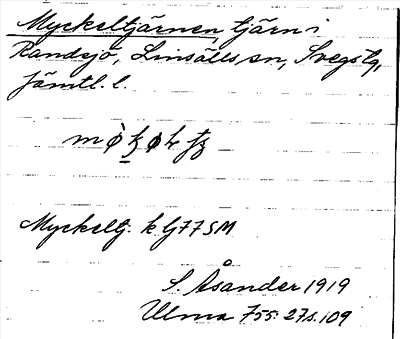 Myckeltjärnen, tjärn i
Randsjö, Linsälls sn, Svegs tg,
Jämtl. l.
Myckeltj. k bj 77 SM
S. Åsander 1919
Ulma 755: 27 s. 109